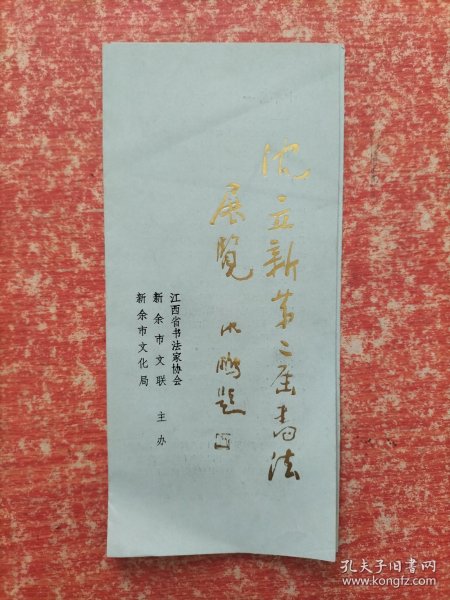 沈立新第二届书法
展览 沈鹏题
江西省书法家协会
新余市文联 主办
新余市文化局
孔夫子旧书网
www.kongfz.com